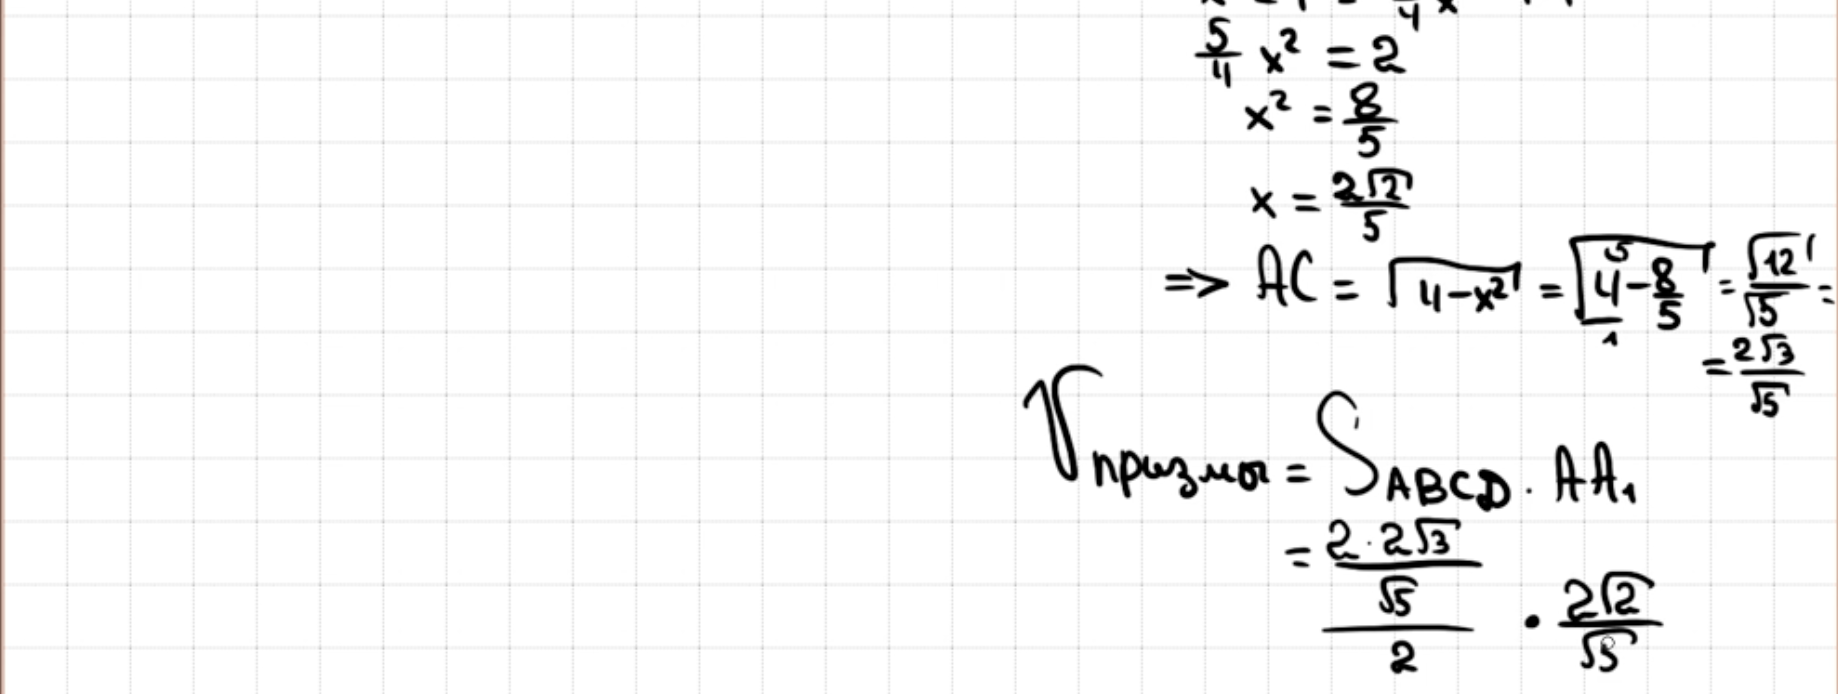 5/4 x² = 2
x² = 8/5
x = 2√2/5
=> AC = √(4-x²) = √(4/1 - 8/5) = √12/√5 =
5
= 2√3/√5
Vпризмы = S ABCD · AA₁
= ((2·2√3)/√5)/2 · 2√2/√5